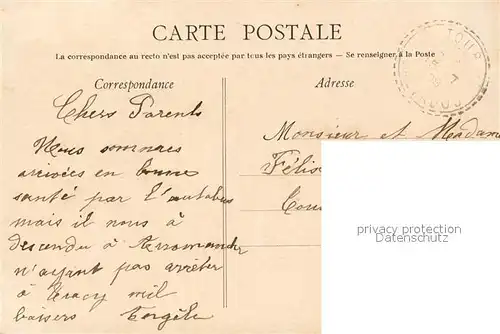 CARTE POSTALE
La correspondance au recto n'est pas acceptée par tous les pays étrangers — Se renseigner à la Poste
Correspondance
Chers Parents
Nous sommes
arrivées en bonne
santé par l'autobus
mais il nous à
descendu à Arromanches
n'ayant pas arrêter
à Tracy mil
baisers
Adresse
Monsieur et Madam
Félis
privacy protection
Datenschutz